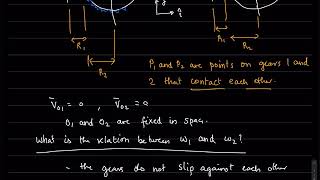 R₁
R₂
R₁
R₂
P₁ and P₂ are points on gears 1 and
2 that contact each other.
V̄o₁ = 0 , V̄o₂ = 0
O₁ and O₂ are fixed in space.
What is the relation between ω₁ and ω₂?
- the gears do not slip against each other